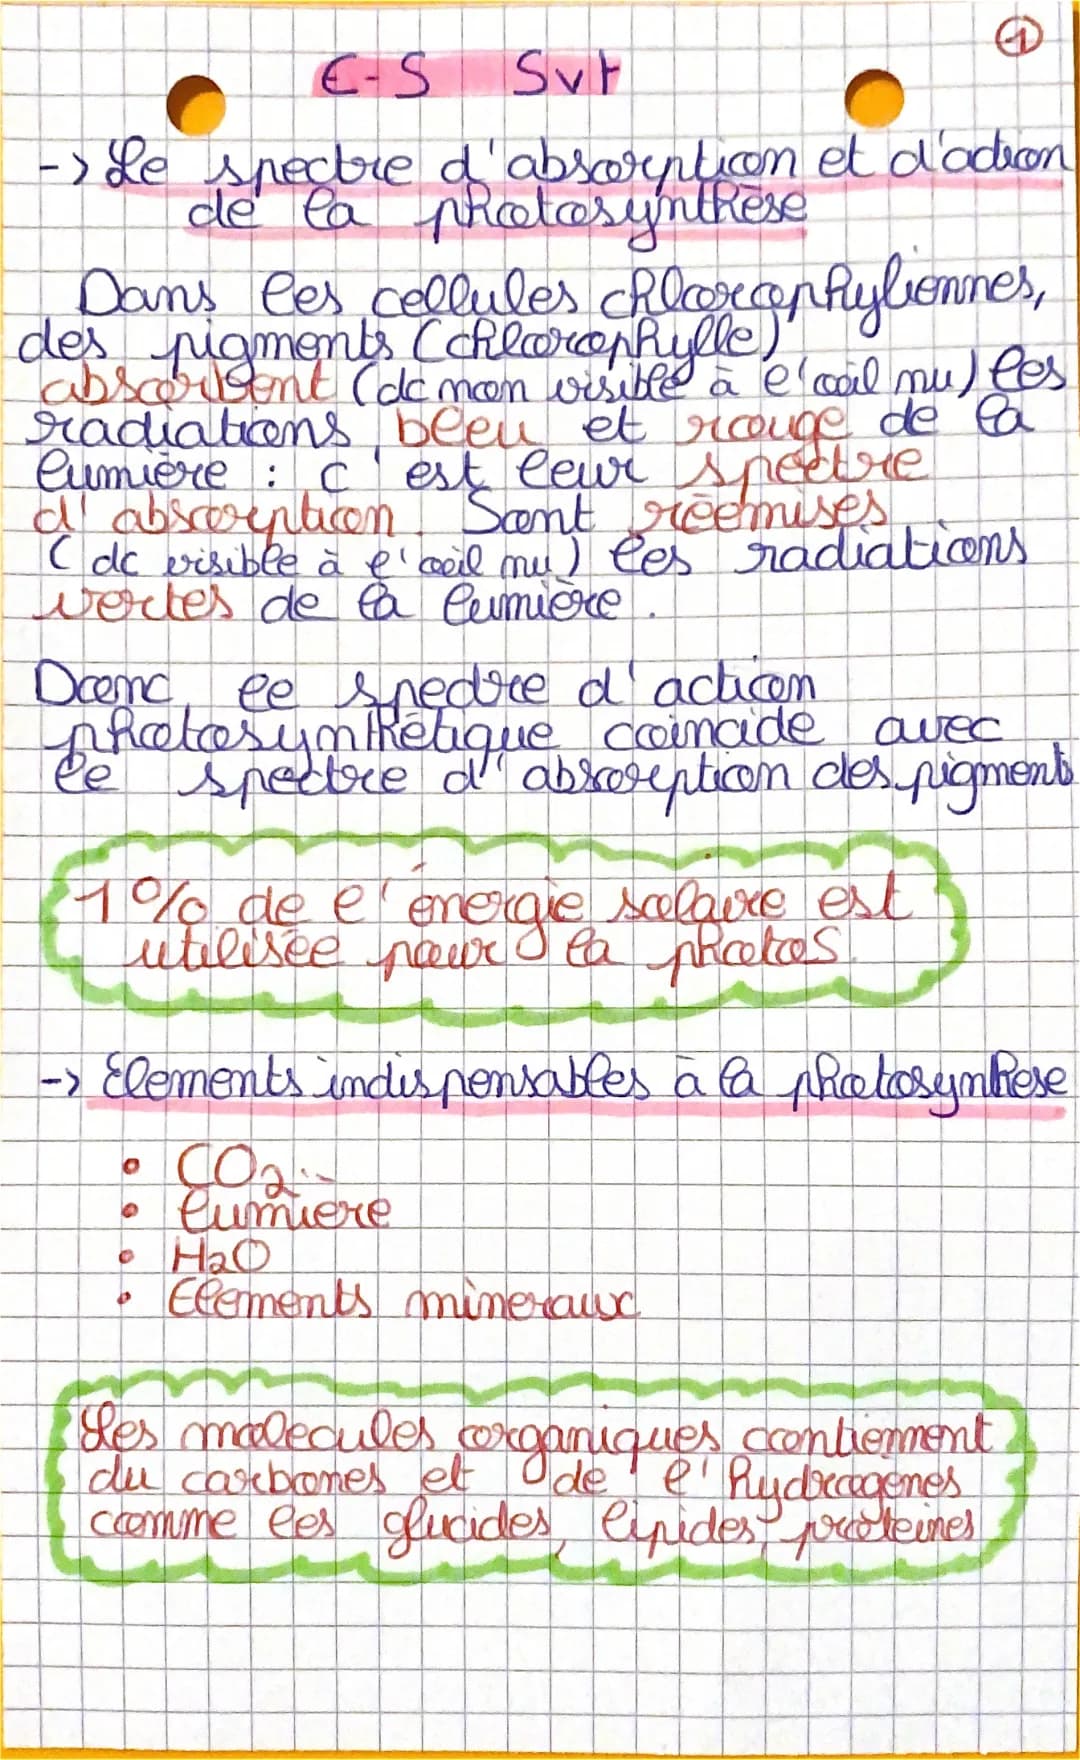 1
E-S Svt
-> Le spectre d'absorption et d'action
de la photosynthèse
Dans les cellules chlorophyliennes,
des pigments (chlorophylle)
absorbent (dc non visible à l'oeil nu) les
radiations bleu et rouge de la
lumière : c'est leur spectre
d'absorption. Sont réemises
(dc visible à l'oeil nu) les radiations
vertes de la lumière.
Donc, le spectre d'action
photosynthétique coincide avec
le spectre d'absorption des pigments
1% de l'énergie solaire est
utilisée pour la photos.
-> Elements indispensables à la photosynthese
• CO2
• lumière
• H2O
• Elements mineraux
Les molecules organiques contiennent
du carbones et de l'hydrogènes
comme les glucides, lipides, proteines